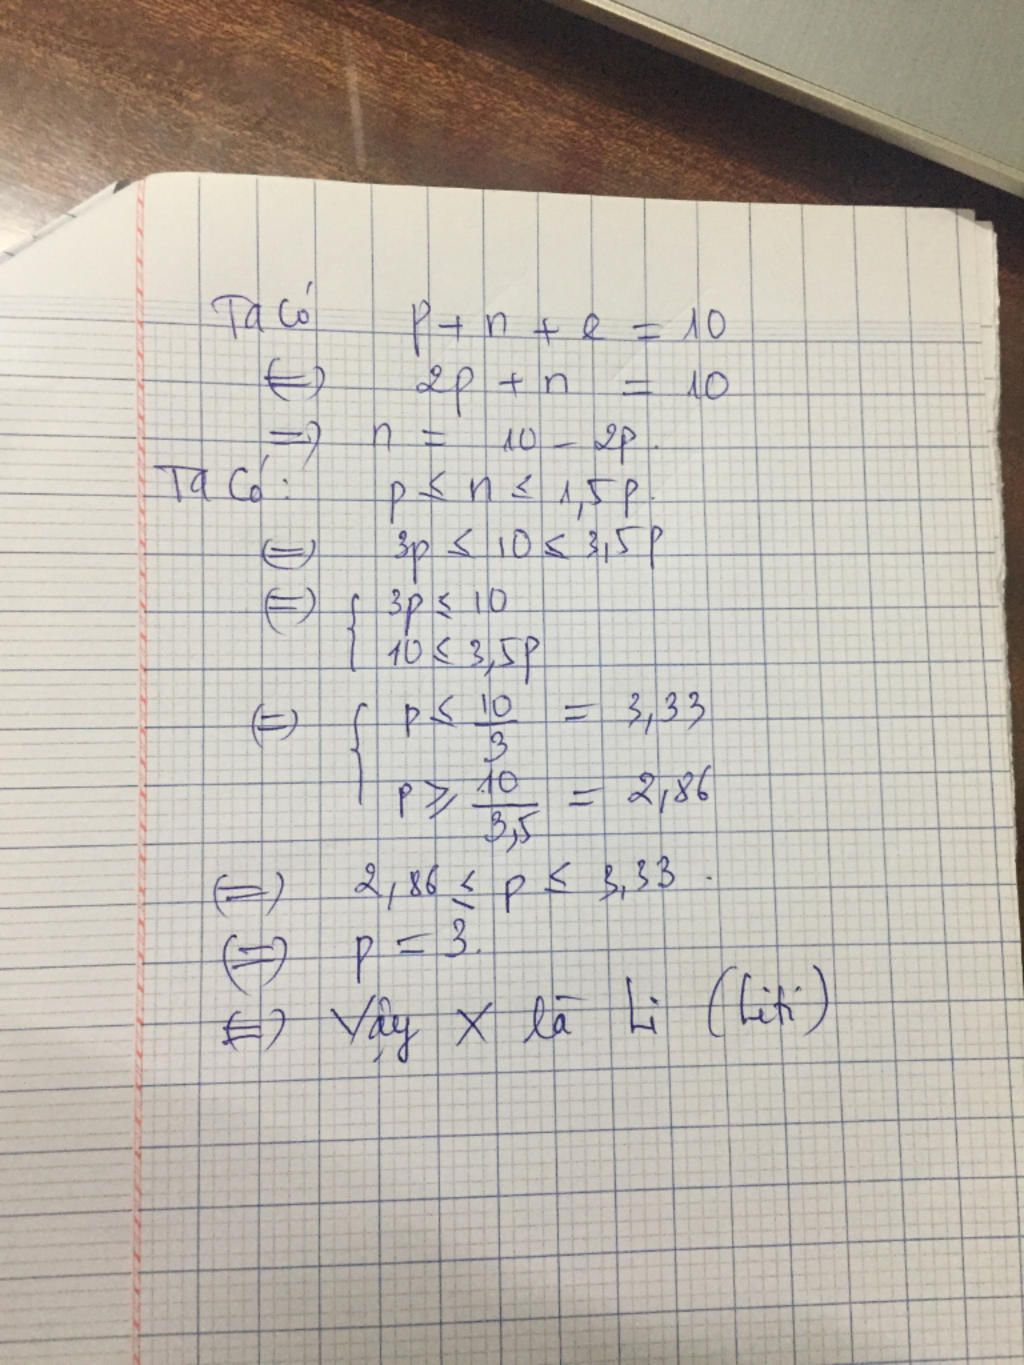 Ta có p + n + e = 10
(=) 2p + n = 10
=) n = 10 - 2p.
Ta có: p ≤ n ≤ 1,5p.
(=) 3p ≤ 10 ≤ 3,5p
(=) { 3p ≤ 10
10 ≤ 3,5p
(=) { p ≤ 10/3 = 3,33
p ≥ 10/3,5 = 2,86
(=) 2,86 ≤ p ≤ 3,33.
(=) p = 3.
(=) Vậy X là Li (Liti)